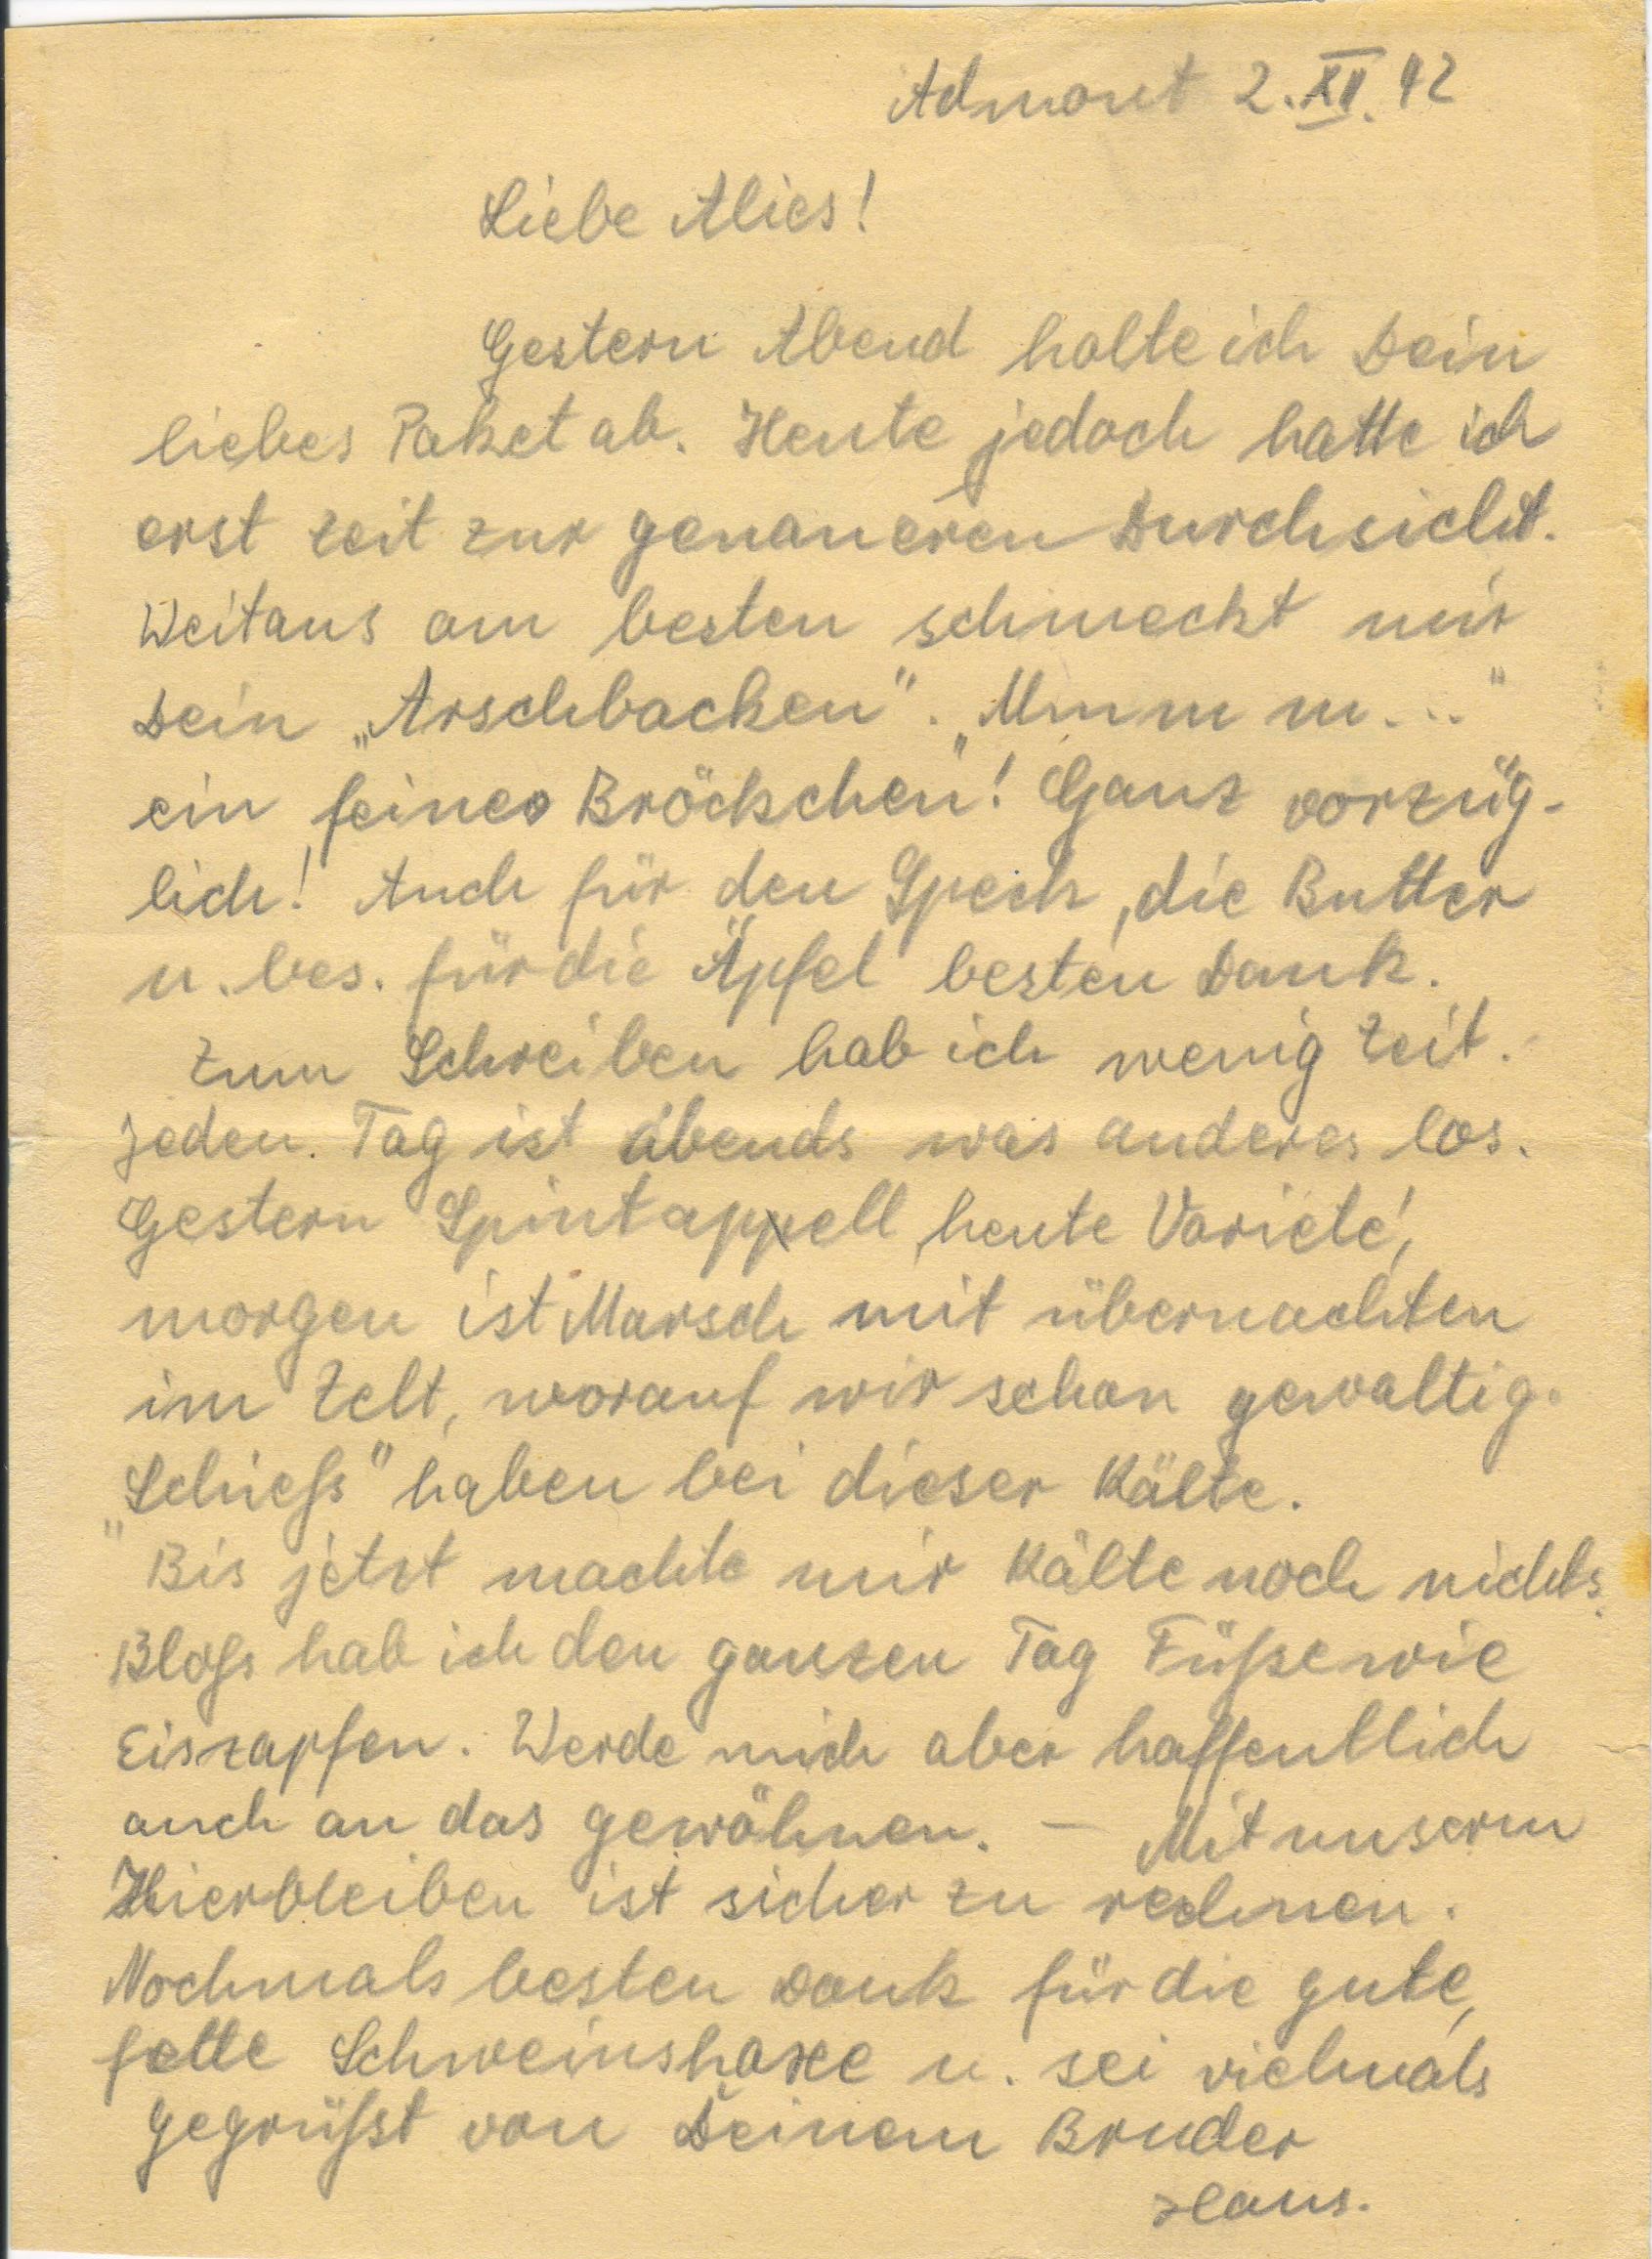 Admont 2. XII. 42
Liebe Alies!
Gestern Abend holte ich Dein
liebes Paket ab. Heute jedoch hatte ich
erst Zeit zur genaueren Durchsicht.
Weitaus am besten schmeckt mir
Dein „Arschbacken". „Mmm m...."
ein feines Bröckchen! Ganz vorzüg-
lich! Auch für den Speck, die Butter
u. bes. für die Äpfel besten Dank.
Zum Schreiben hab ich wenig Zeit.
Jeden Tag ist abends was anderes los.
Gestern Spintappell, heute Varieté,
morgen ist Marsch mit übernachten
im Zelt, worauf wir schon gewaltig
„Schiess" haben bei dieser Kälte.
Bis jetzt machte mir Kälte noch nichts.
Bloss hab ich den ganzen Tag Füße wie
Eiszapfen. Werde mich aber hoffentlich
auch an das gewöhnen. – Mit unserm
Hierbleiben ist sicher zu rechnen.
Nochmals besten Dank für die gute,
fette Schweinshaxe u. sei vielmals
gegrüßt von Deinem Bruder
Hans.